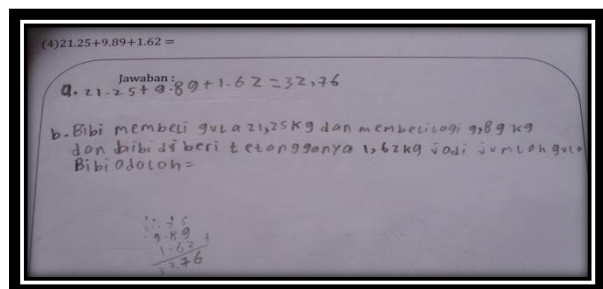 (4)21.25+9.89+1.62 =
Jawaban :
a. 21.25+9.89+1.62=32,76
b. Bibi membeli gula 21,25kg dan membeli lagi 9,89 kg
dan bibi di beri tetangganya 1,62kg jadi jumlah gula
Bibi adalah=
21.25
9.89
1.62 +
32.76